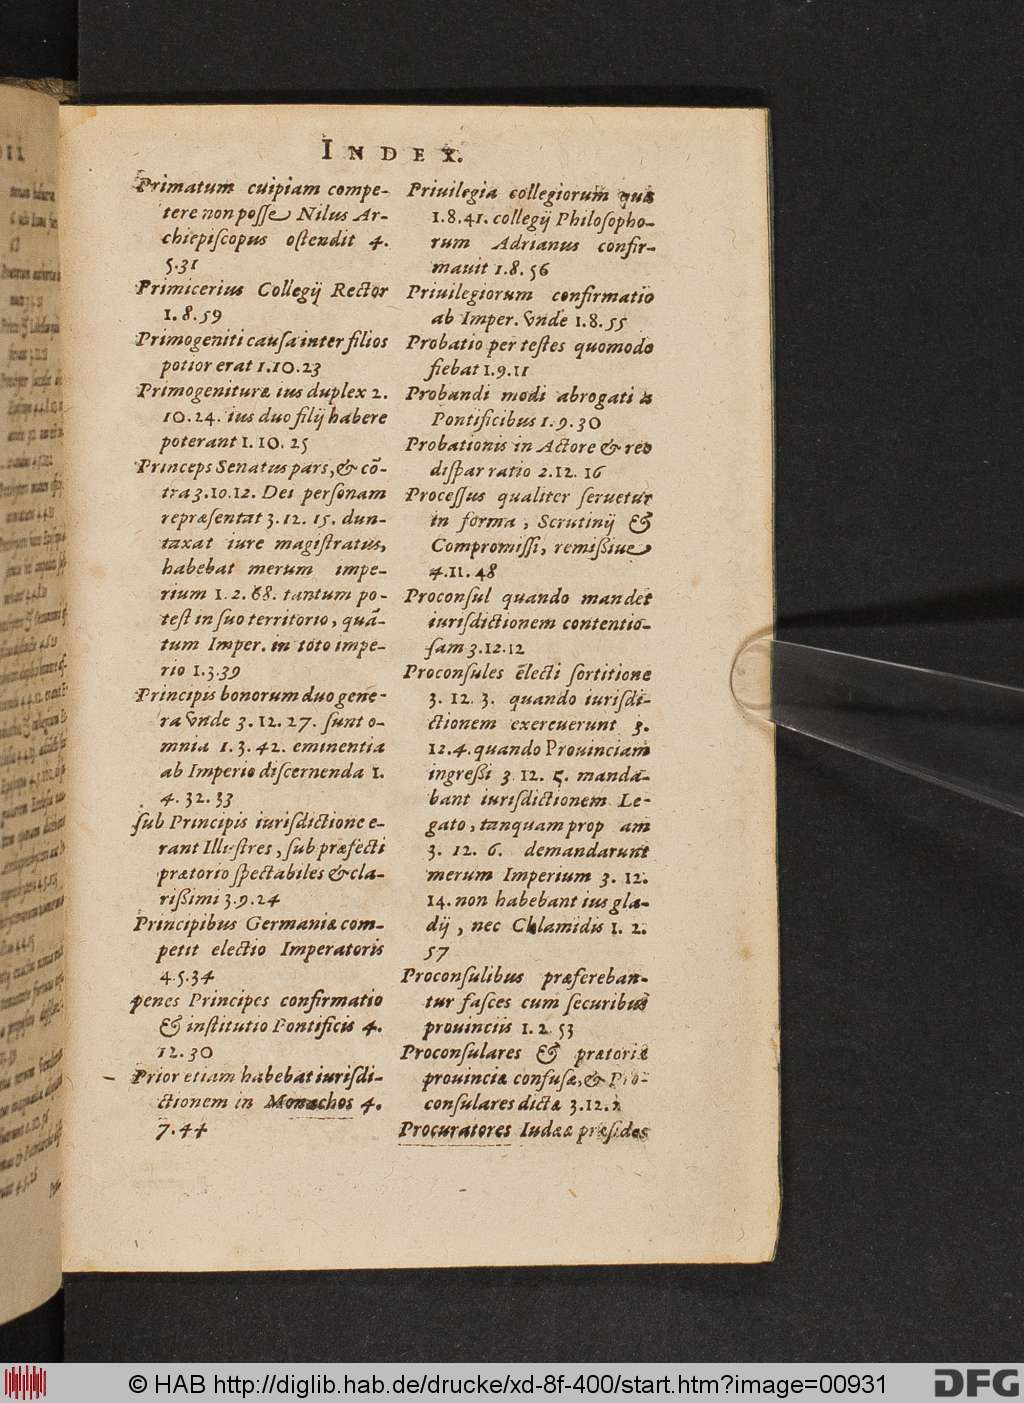 INDEX.
Primatum cuipiam compe-
tere non posse Nilus Ar-
chiepiscopus ostendit 4.
5.31
Primicerius Collegij Rector
1.8.59
Primogeniti causa inter filios
potior erat 1.10.23
Primogenituræ ius duplex 2.
10.24. ius duo filij habere
poterant 1.10.25
Princeps Senatus pars, & cō-
tra 3.10.12. Dei personam
repræsentat 3.12.15. dun-
taxat iure magistratus,
habebat merum impe-
rium 1.2.68. tantum po-
test in suo territorio, quā-
tum Imper. in toto impe-
rio 1.3.39
Principis bonorum duo gene-
ra vnde 3.12.27. sunt o-
mnia 1.3.42. eminentia
ab Imperio discernenda 1.
4.32.33
sub Principis iurisdictione e-
rant Illustres, sub præfecti
prætorio spectabiles & cla-
rißimi 3.9.24
Principibus Germaniæ com-
petit electio Imperatoris
4.5.34
penes Principes confirmatio
& institutio Pontificis 4.
12.30
Prior etiam habebat iurisdi-
ctionem in Monachos 4.
7.44
Priuilegia collegiorum quæ
1.8.41. collegij Philosopho-
rum Adrianus confir-
mauit 1.8.56
Priuilegiorum confirmatio
ab Imper. vnde 1.8.55
Probatio per testes quomodo
fiebat 1.9.11
Probandi modi abrogati à
Pontificibus 1.9.30
Probationis in Actore & reo
dispar ratio 2.12.16
Processus qualiter seruetur
in forma, Scrutinij &
Compromissi, remißiue
4.11.48
Proconsul quando mandet
iurisdictionem contentio-
sam 3.12.12
Proconsules electi sortitione
3.12.3. quando iurisdi-
ctionem exercuerunt 3.
12.4. quando Prouinciam
ingreßi 3.12.5. manda-
bant iurisdictionem Le-
gato, tanquam prop am
3.12.6. demandarunt
merum Imperium 3.12.
14. non habebant ius gla-
dij, nec Chlamidis 1.2.
57
Proconsulibus præfereban-
tur fasces cum securibus
prouinciis 1.2.53
Proconsulares & prætoriæ
prouinciæ confusæ, & Pro-
consulares dictæ 3.12.2
Procuratores Iudææ præsides
© HAB http://diglib.hab.de/drucke/xd-8f-400/start.htm?image=00931
DFG